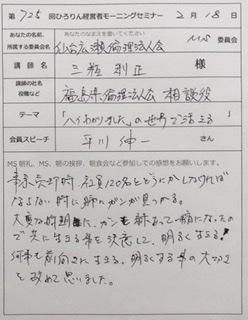 第 725 回ひろりん経営者モーニングセミナー 2月18日
あなたのお名前、
所属する委員会名
あなたの名前を書いてください。
仙台広瀬倫理法人会 MS 委員会
講師名
三瓶利正 様
講師の社名
役職など
福島県倫理法人会 相談役
テーマ
「ハイわかりました」の世界で活きる
会員スピーチ
平川伸一 さん
MS朝礼、MS、朝の挨拶、朝食会など参加しての感想をお願いします。
売却時、社員120名とどうにかしなければ
ならない時に肺にガンが見つかる。
大変な時期に、ガンも
ので共に生きる事を決意して、明るく生きる!
何事も前向きに生きる。明るくする事の大切さ
を改めて思いました。